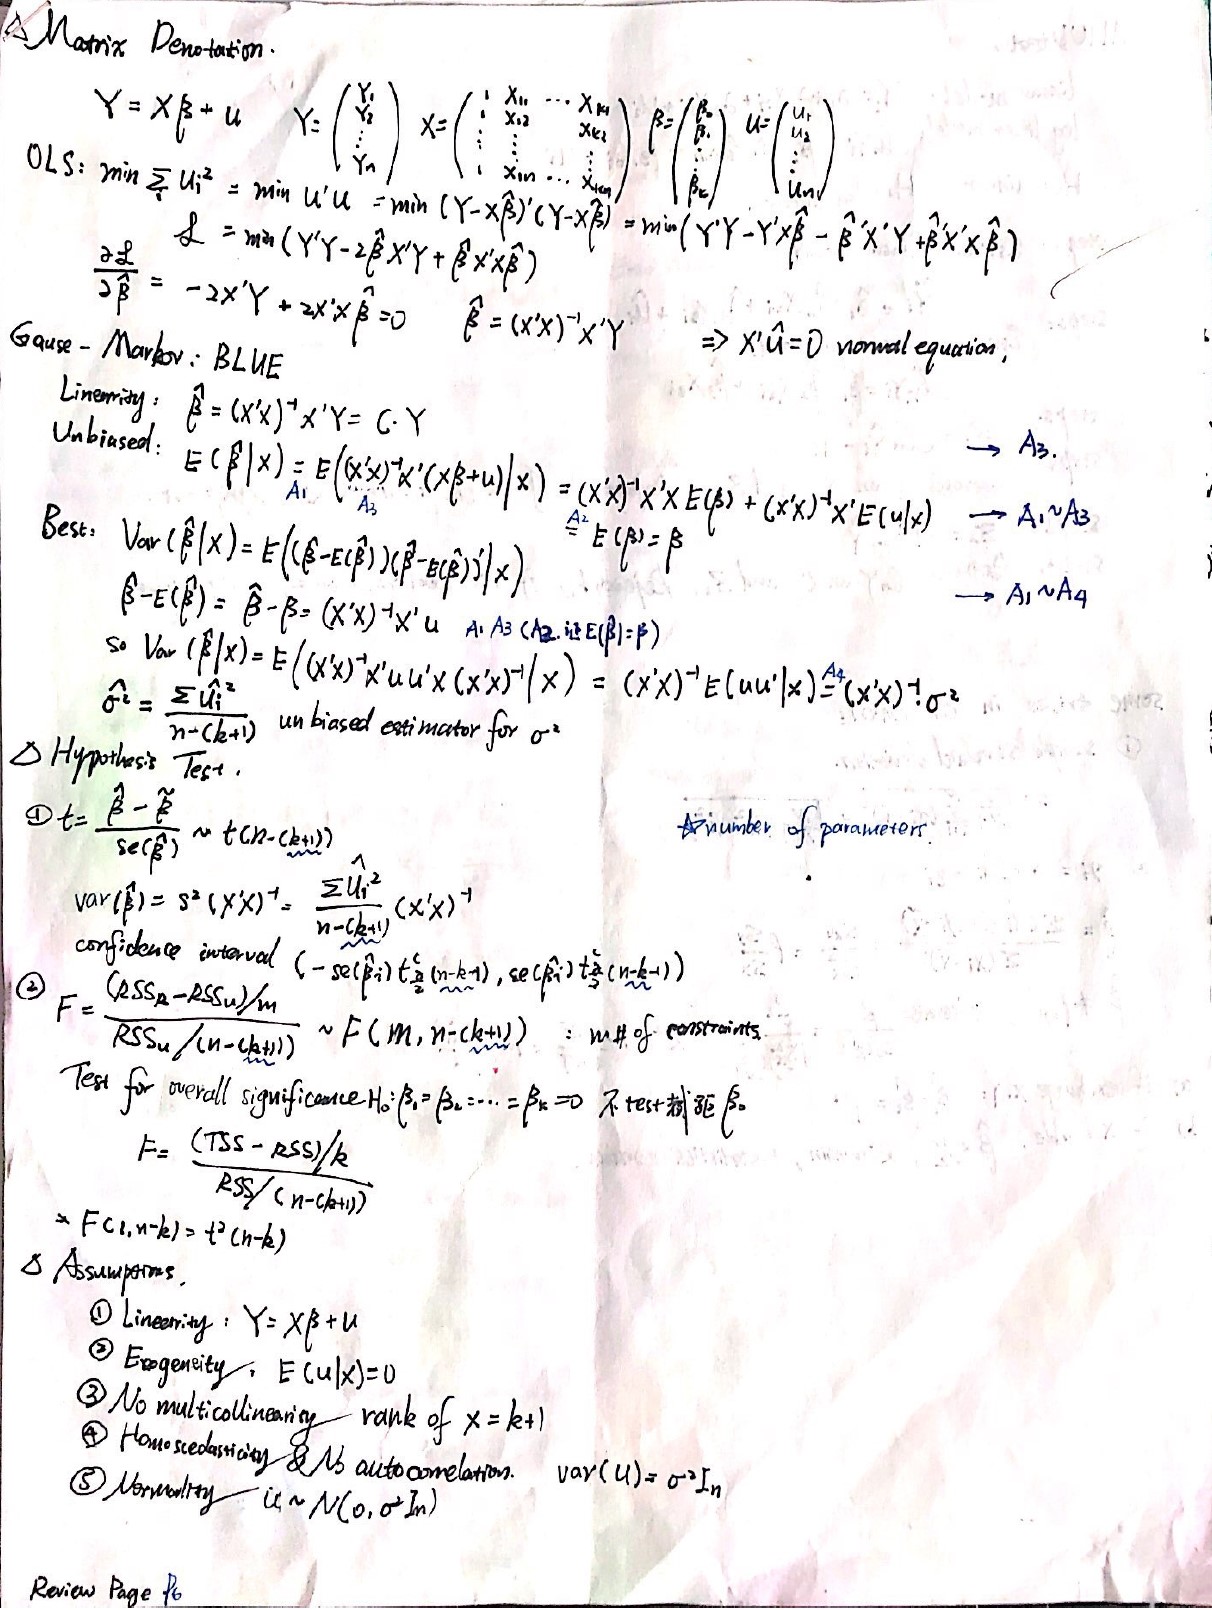 △ Matrix Denotation.
Y = Xβ + u Y = (Y₁ Y₂ ⋮ Yn) X = (1 X₁₁ ⋯ Xk1 1 X₁₂ Xk2 ⋮ ⋮ ⋮ 1 X1n ⋯ Xkn) β = (β₀ β₁ ⋮ βk) u = (u₁ u₂ ⋮ un)
OLS: min Σᵢ uᵢ² = min u'u = min (Y-Xβ̂)'(Y-Xβ̂) = min(Y'Y - Y'Xβ̂ - β̂'X'Y + β̂'X'Xβ̂)
ℒ = min (Y'Y - 2β̂X'Y + β̂X'Xβ̂)
∂ℒ/∂β̂ = -2X'Y + 2X'Xβ̂ = 0 β̂ = (X'X)⁻¹X'Y ⇒ X'û = 0 normal equation,
Gause - Markov: BLUE
Linearity: β̂ = (X'X)⁻¹X'Y = C·Y → A3.
Unbiased: E(β̂|X) = E((X'X)⁻¹X'(Xβ+u)|X) = (X'X)⁻¹X'X E(β) + (X'X)⁻¹X'E(u|X) → A1~A3
A1 A3 A2 = E(β) = β
Best: Var(β̂|X) = E((β̂-E(β̂))(β̂-E(β̂))'|X)
β̂-E(β̂) = β̂-β = (X'X)⁻¹X'u A1 A3 (A2 证E(β̂)=β) → A1~A4
so Var(β̂|X) = E((X'X)⁻¹X'uu'X(X'X)⁻¹|X) = (X'X)⁻¹E(uu'|X) A4 = (X'X)⁻¹·σ²
σ̂² = Σûᵢ²/n-(k+1) unbiased estimator for σ²
△ Hypothesis Test.
① t = β̂ - β̃ / se(β̂) ~ t(n-(k+1)) ☆number of parameters.
var(β̂) = s²(X'X)⁻¹ = Σûᵢ²/n-(k+1) (X'X)⁻¹
confidence interval (-se(β̂i) t^c_{α/2}(n-k-1), se(β̂i) t^c_{α/2}(n-k-1))
② F = (RSSR-RSSu)/m / RSSu/(n-(k+1)) ~ F(m, n-(k+1)) : m # of constraints
Test for overall significance H₀: β₁ = β₂ = ⋯ = βk = 0 不test截距 β₀
F = (TSS - RSS)/k / RSS/(n-(k+1))
* F(1, n-k) = t²(n-k)
△ Assumptions.
① Linearity: Y = Xβ + u
② Exogeneity. E(u|X) = 0
③ No multicollinearity rank of X = k+1
④ Homoscedasticity & No autocorrelation. var(u) = σ²In
⑤ Normality u ~ N(0, σ²In)
Review Page P6